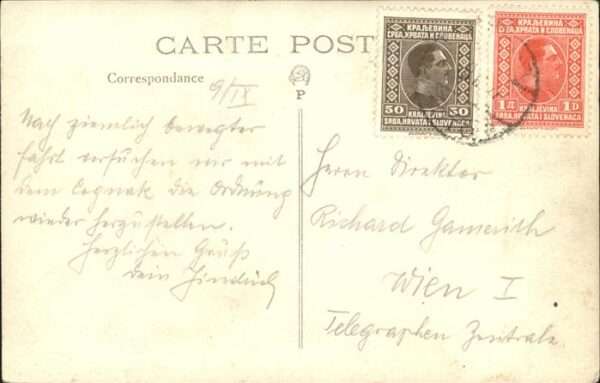 CARTE POST
Correspondance
9/IX
P
Nach ziemlich bewegter
Fahrt versuchen wir mit
dem Cognak die Ordnung
wieder herzustellen.
Herzlichen Gruß
Dein
КРАЉЕВИНА
СРБА, ХРВАТА И СЛОВЕНАЦА
50 KRALJEVINA 50
SRBA, HRVATA I SLOVENACA
КРАЉЕВИНА
СРБА, ХРВАТА И СЛОВЕНАЦА
1 Д KRALJEVINA 1 D
SRBA, HRVATA I SLOVENACA
Herrn Direktor
Richard Gamerith
Wien I
Telegraphen Zentrale